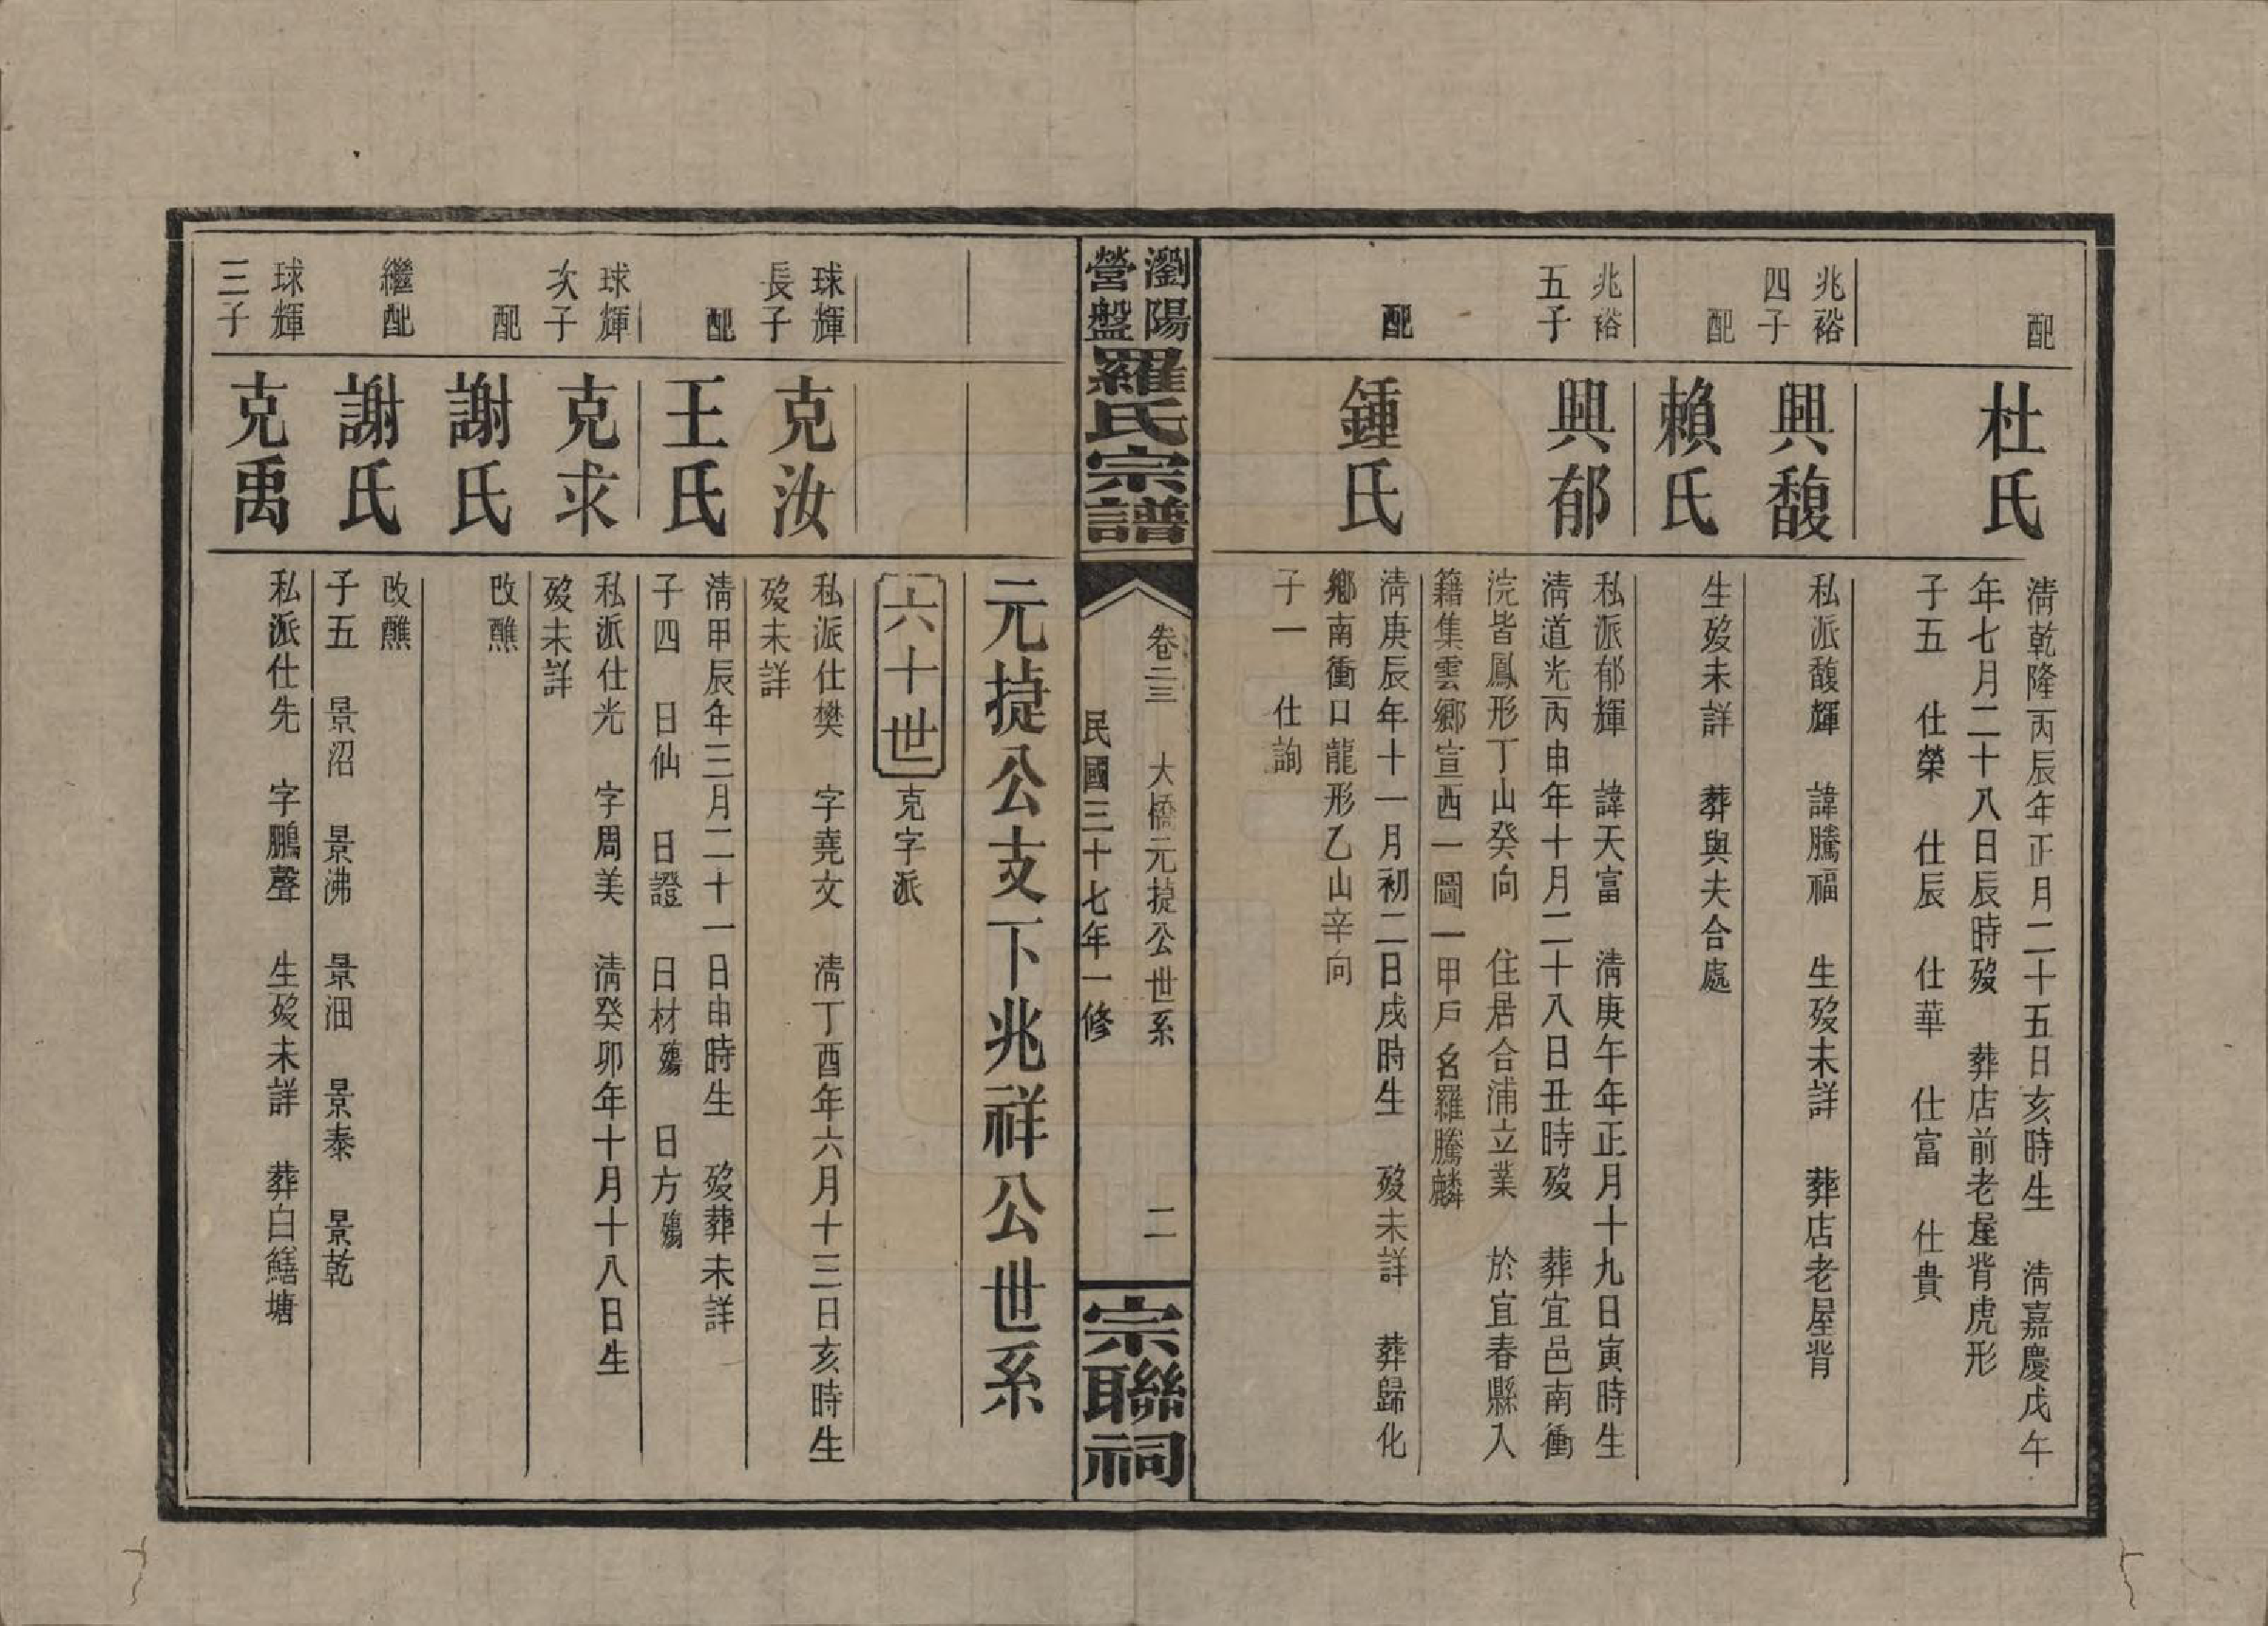 配
杜氏
清乾隆丙辰年正月二十五日亥時生　清嘉慶戊午
年七月二十八日辰時歿　葬店前老屋背虎形
子五　仕榮　仕辰　仕華　仕富　仕貴
兆裕
四子
興馥
私派馥輝　諱騰福　生歿未詳　葬店老屋背
配
賴氏
生歿未詳　葬與夫合處
兆裕
五子
興郁
私派郁輝　諱天富　清庚午年正月十九日寅時生
清道光丙申年十月二十八日丑時歿　葬宜邑南衝
浣皆鳳形丁山癸向　住居合浦立業　於宜春縣入
籍集雲鄉宣西一圖一甲戶名羅騰麟
配
鍾氏
清庚辰年十一月初二日戌時生　歿未詳　葬歸化
鄉南衝口龍形乙山辛向
子一　仕詢
瀏陽
營盤
羅氏宗譜
卷二三　大橋元㨗公世系　二
民國三十七年一修
宗聯祠
元㨗公支下兆祥公世系
六十世　克字派
球輝
長子
克汝
私派仕樊　字堯文　清丁酉年六月十三日亥時生
歿未詳
配
王氏
清甲辰年三月二十一日申時生　歿葬未詳
子四　日仙　日證　日材殤　日方殤
球輝
次子
克求
私派仕光　字周美　清癸卯年十月十八日生
歿未詳
配
謝氏
改醮
繼配
謝氏
改醮
子五　景沼　景沸　景沺　景泰　景乾
球輝
三子
克禹
私派仕先　字鵬聲　生歿未詳　葬白鱔塘